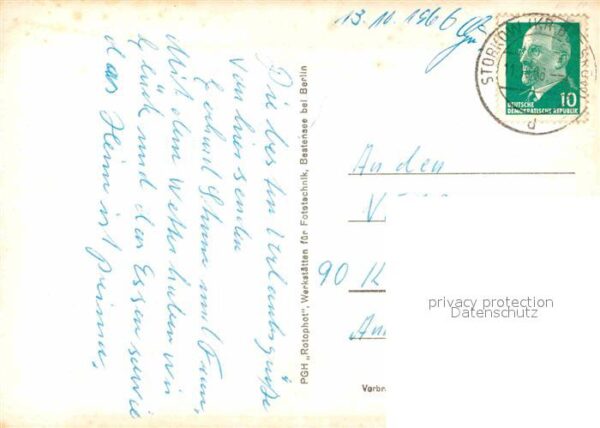 13.10.1966
STORKOW (KR
d
10
DEUTSCHE
DEMOKRATISCHE REPUBLIK
Die besten Urlaubsgrüße
von hier senden
Erhard Schum und Frau,
Mit dem Wetter haben wir
Glück und das Essen sowie
das Heim ist prima,
PGH „Rotophot", Werkstätten für Fototechnik, Bestensee bei Berlin
An den
V
90 K
An
Verbr.
privacy protection
Datenschutz